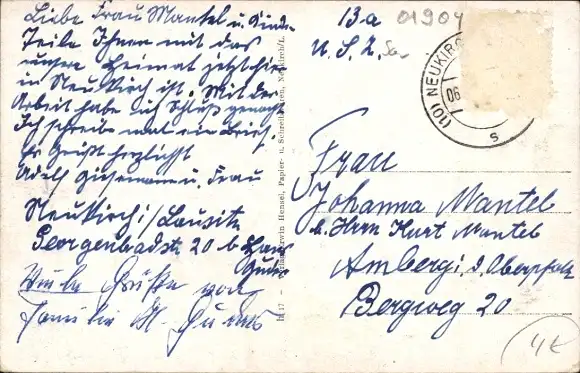 Liebe Frau Mantel u. Kinder
Teile Ihnen mit das
unsere Heimat jetzt hier
in Neukirch ist. Mit der
Arbeit habe ich Schluß gemacht
Ich schreibe mal ein Brief.
Es grüßt herzlichst
Adolf u. Frau
Neukirch/Lausitz
Georgenbadstr. 20 b.
Viele Grüße von
Familie
13a
01904
U. S. Z.
(10) NEUKIRCH
06
s
Erwin Hensel, Papier- u. Schreibwaren, Neukirch/L.
Frau
Johanna Mantel
b. Herrn Kurt Mantel
Amberg i. d. Oberpfalz
Bergweg 20